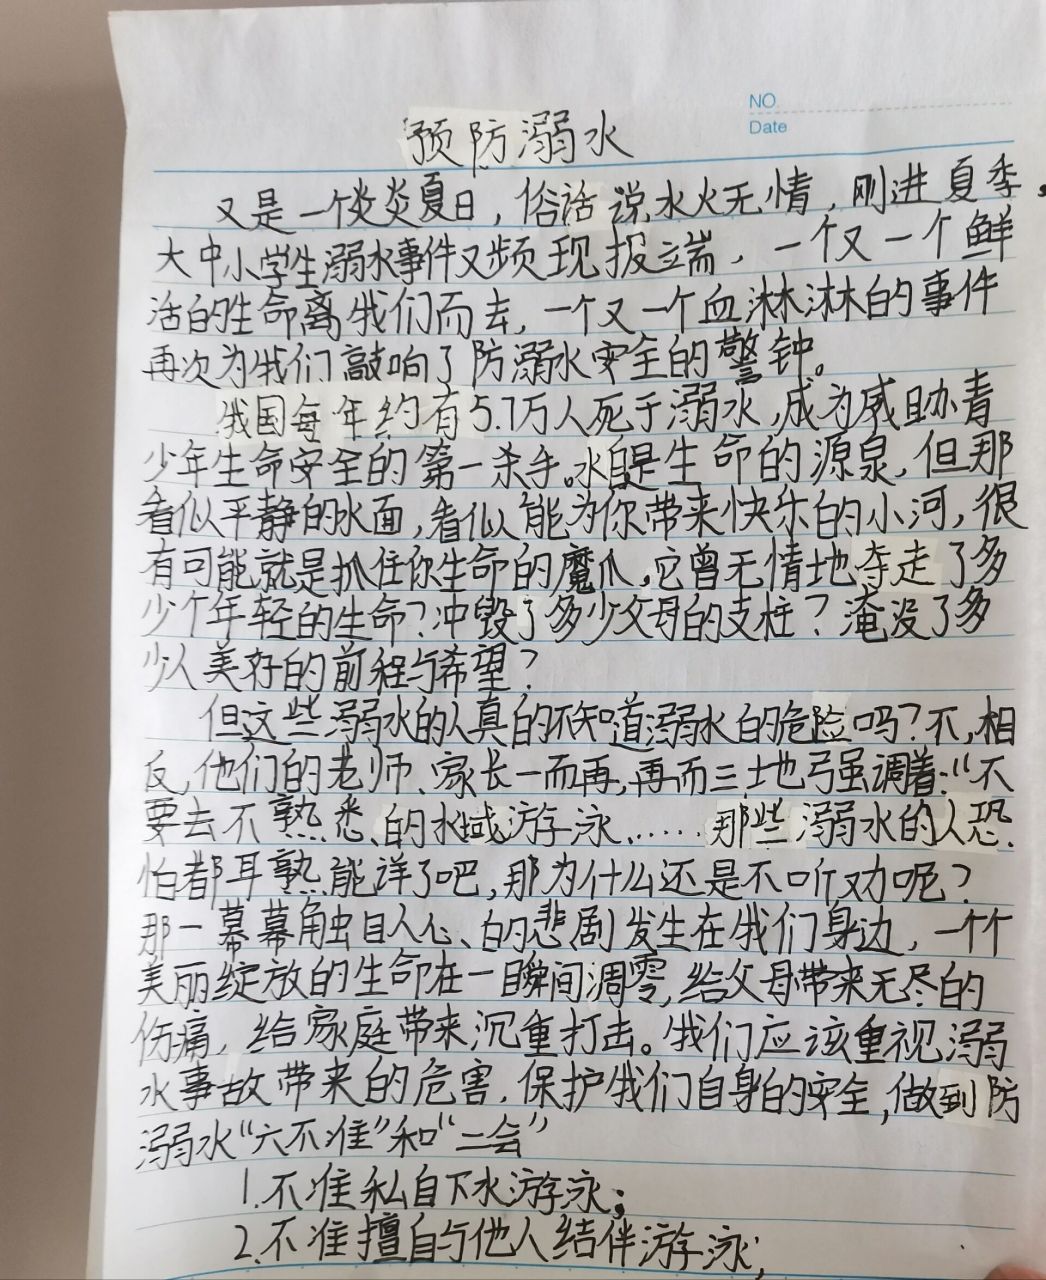 NO.
Date
预防溺水
又是一个炎炎夏日，俗话说水火无情，刚进夏季。
大中小学生溺水事件又频现报端，一个又一个鲜
活的生命离我们而去，一个又一个血淋淋的事件
再次为我们敲响了防溺水安全的警钟。
我国每年约有5.7万人死于溺水，成为威胁青
少年生命安全的第一杀手。水自是生命的源泉，但那
看似平静的水面，看似能为你带来快乐的小河，很
有可能就是抓住你生命的魔爪，它曾无情地夺走了多
少个年轻的生命？冲毁了多少父母的支柱？淹没了多
少人美好的前程与希望？
但这些溺水的人真的不知道溺水的危险吗？不，相
反，他们的老师、家长一而再，再而三地强调着：“不
要去不熟悉的水域游泳……那些溺水的人恐
怕都耳熟能详了吧，那为什么还是不听劝呢？
那一幕幕触目人心、的悲剧发生在我们身边，一个个
美丽绽放的生命在一瞬间凋零，给父母带来无尽的
伤痛，给家庭带来沉重打击。我们应该重视溺
水事故带来的危害，保护我们自身的安全，做到防
溺水“六不准”和“二会”
1.不准私自下水游泳；
2.不准擅自与他人结伴游泳；